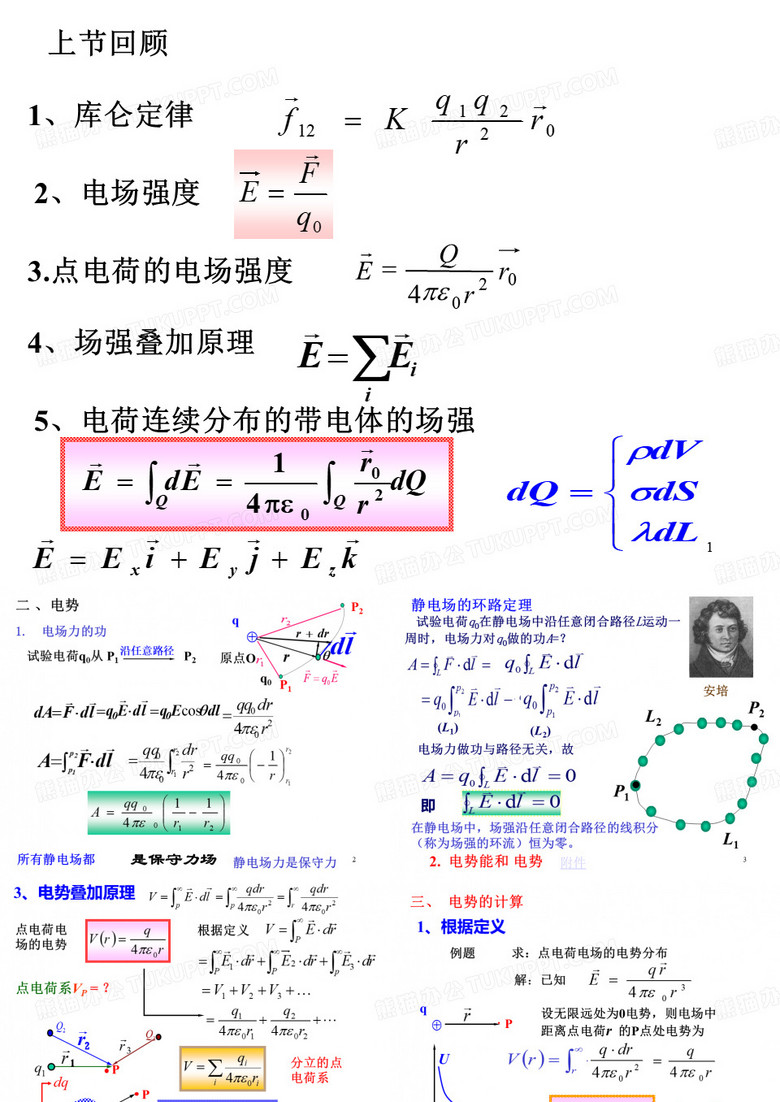 上节回顾
1、库仑定律 \vec{f}_{12} = K \frac{q_1 q_2}{r^2} \vec{r}_0
2、电场强度 \vec{E} = \frac{\vec{F}}{q_0}
3.点电荷的电场强度 \vec{E} = \frac{Q}{4πε_0 r^2} \vec{r_0}
4、场强叠加原理 \vec{E} = \sum_i \vec{E}_i
5、电荷连续分布的带电体的场强
\vec{E} = \int_Q d\vec{E} = \frac{1}{4πε_0} \int_Q \frac{\vec{r}_0}{r^2} dQ
dQ = { ρdV
σdS
λdL
\vec{E} = E_x \vec{i} + E_y \vec{j} + E_z \vec{k}
1
二、电势
1. 电场力的功
试验电荷q_0从 P_1 沿任意路径 P_2
q r_2 P_2
r + dr d\vec{l}
原点O r_1 r θ
q_0 P_1 \vec{F} = q_0\vec{E}
dA=\vec{F}·d\vec{l}=q_0\vec{E}·d\vec{l}=q_0Ecosθdl=\frac{qq_0dr}{4πε_0r^2}
A=\int_{P_1}^{P_2}\vec{F}·d\vec{l} = \frac{qq_0}{4πε_0}\int_{r_1}^{r_2}\frac{dr}{r^2} = \frac{qq_0}{4πε_0}(-\frac{1}{r})_{r_1}^{r_2}
A = \frac{qq_0}{4πε_0}(\frac{1}{r_1} - \frac{1}{r_2})
所有静电场都 是保守力场 静电场力是保守力
2
静电场的环路定理
试验电荷q_0在静电场中沿任意闭合路径L运动一
周时，电场力对q_0做的功A=？
A=\oint_L \vec{F}·d\vec{l} = q_0\oint_L \vec{E}·d\vec{l}
=q_0\int_{P_1}^{P_2}\vec{E}·d\vec{l} - q_0\int_{P_1}^{P_2}\vec{E}·d\vec{l}
(L_1) (L_2)
电场力做功与路径无关，故
A = q_0\oint_L \vec{E}·d\vec{l} = 0
即 \oint_L \vec{E}·d\vec{l} = 0
在静电场中，场强沿任意闭合路径的线积分
（称为场强的环流）恒为零。
2. 电势能和 电势 附件
安培
L_2 P_2
P_1
L_1
3
3、电势叠加原理 V=\int_P^∞ \vec{E}·d\vec{l} = \int_r^∞ \frac{qdr}{4πε_0r^2} = \int_r^∞ \frac{qdr}{4πε_0r^2}
点电荷电
场的电势
V(r)=\frac{q}{4πε_0r}
根据定义 V=\int_P^∞ \vec{E}·d\vec{r}
=\int_P^∞ \vec{E}_1·d\vec{r}+\int_P^∞ \vec{E}_2·d\vec{r}+\int_P^∞ \vec{E}_3·d\vec{r}
点电荷系V_P=？
=V_1+V_2+V_3+…
=\frac{q_1}{4πε_0r_1}+\frac{q_2}{4πε_0r_2}+…
Q_2 \vec{r}_2 \vec{r}_3
q_1 \vec{r}_1 P
V=\sum_i \frac{q_i}{4πε_0r_i}
分立的点
电荷系
dq
P
三、 电势的计算
1、根据定义
例题 求：点电荷电场的电势分布
解：已知 \vec{E} = \frac{q\vec{r}}{4πε_0r^3}
q \vec{r} P
设无限远处为0电势，则电场中
距离点电荷r 的P点处电势为
U
V(r)=\int_r^∞ \frac{q·dr}{4πε_0r^2} = \frac{q}{4πε_0r}